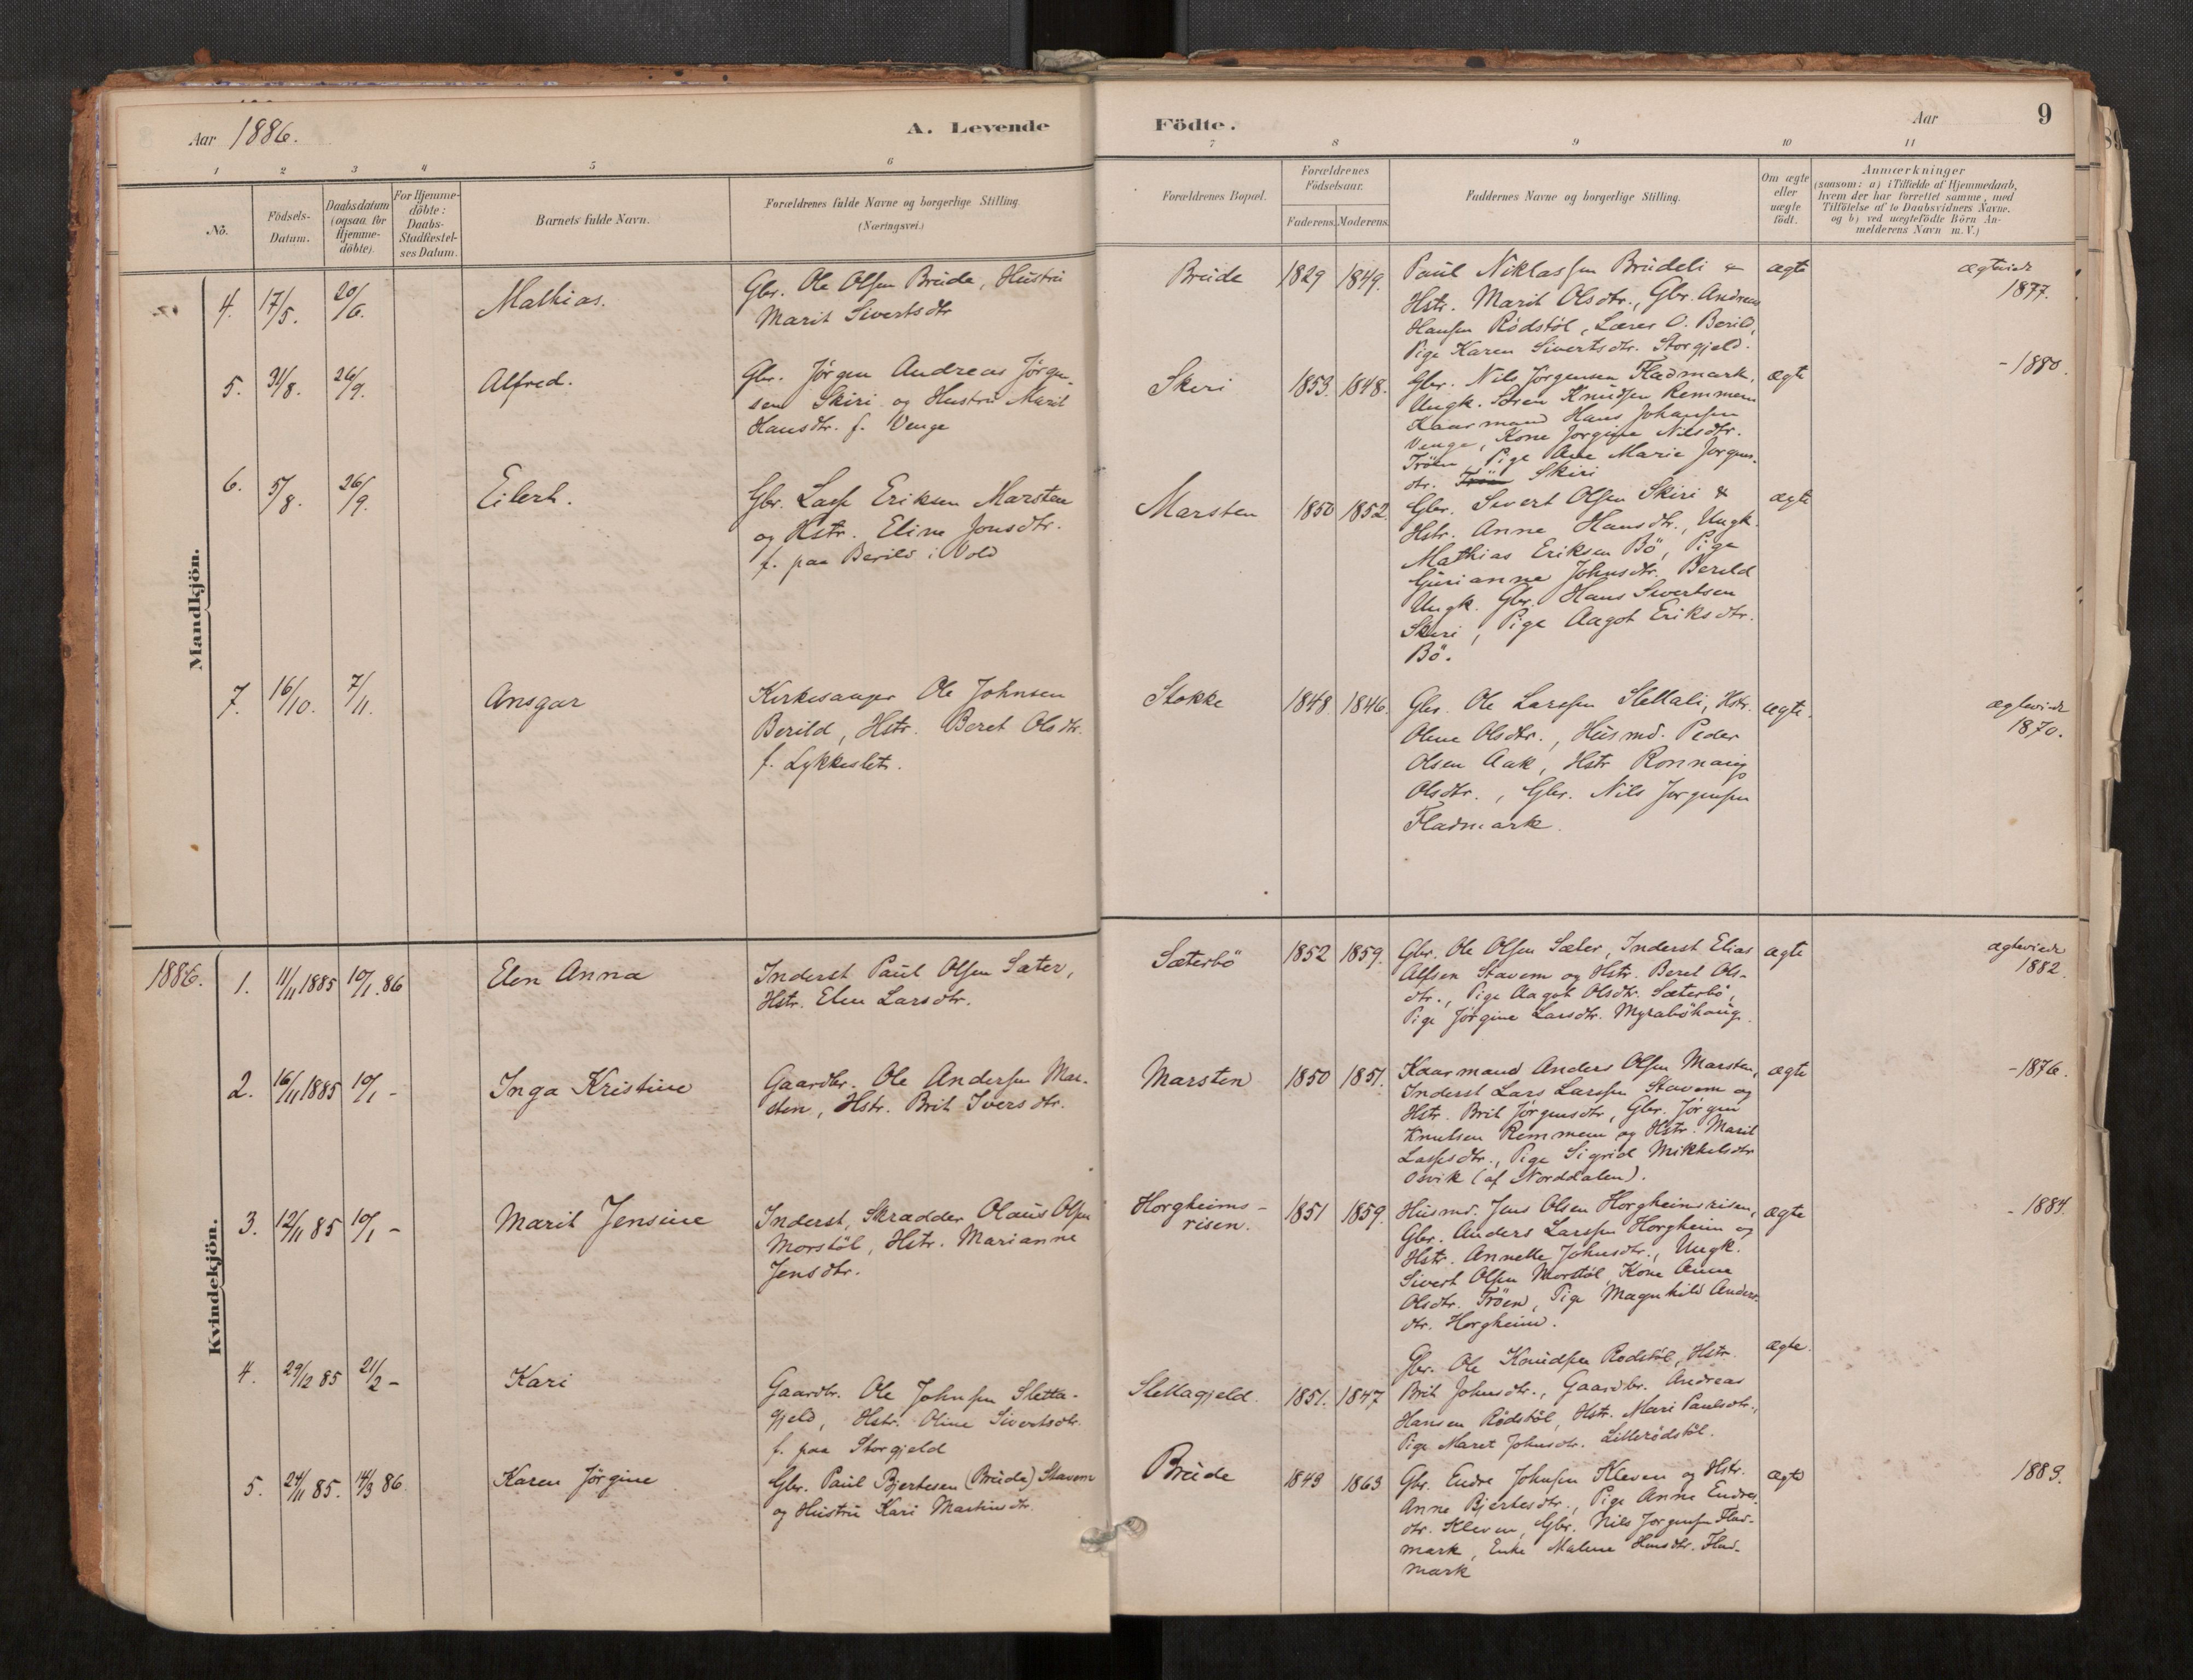 Aar 1886.
A. Levende
Födte.
Aar
9
1 2 3 4 5 6 7 8 9 10 11
No.
Födsels-
Datum.
Daabsdatum
(ogsaa for
Hjemme-
döbte).
For Hjemme-
döbte:
Daabs-
Stadfæstel-
ses Datum.
Barnets fulde Navn.
Forældrenes fulde Navne og borgerlige Stilling.
(Næringsvei.)
Forældrenes Bopæl.
Forældrenes
Födselsaar.
Faderens. Moderens.
Faddernes Navne og borgerlige Stilling.
Om ægte
eller
uægte
födt.
Anmærkninger
(saasom: a) i Tilfælde af Hjemmedaab,
hvem der har forrettet samme, med
Tilföielse af to Daabsvidners Navne.
og b) ved uægtefödte Börn An-
melderens Navn m. V.)
Mandkjön.
4. 17/5. 20/6. Mathias.
Gbr. Ole Olsen Brude, Hustru
Marit Sivertsdtr
Brude 1829 1849.
Paul Niklassen Brudeli &
Hstr. Marit Olsdtr., Gbr. Andreas
Hansen Rödstöl, Lærer O. Berild,
Pige Karen Sivertsdtr. Storgjeld.
ægte
ægteviede
1877.
5. 31/8. 26/9. Alfred.
Gbr. Jörgen Andreas Jörgen-
sen Skiri og Hustru Marit
Hansdtr. f. Venge
Skiri 1853. 1848.
Gbr. Nils Jörgensen Fladmark,
Ungk. Sören Knudsen Remmem
Kaarmand Hans Johansen
Venge, Kone Jörgine Nilsdtr.
Tröen, Pige Ane Marie Jörgens-
dtr. Tröen Skiri
ægte
- 1880.
6. 5/8. 26/9. Eilert.
Gbr. Lasse Eriksen Marsten
og Hstr. Eline Jonsdtr.
f. paa Berild i Vold
Marsten 1850 1852.
Gbr. Sivert Olsen Skiri &
Hstr. Anne Hansdtr., Ungk.
Mathias Eriksen Bö, Pige
Gurianne Johnsdtr. Berild
Ungk. Gbr. Hans Sivertsen
Skiri, Pige Aagot Eriksdtr.
Bö.
ægte
7. 16/10. 7/11. Ansgar
Kirkesanger Ole Johnsen
Berild, Hstr. Beret Olsdtr.
f. Lykkeslet.
Stokke 1848 1846.
Gbr. Ole Larssen Slettali, Hstr.
Olene Olsdtr., Husmd. Peder
Olsen Aak, Hstr Ronnaug
Olsdtr., Gbr. Nils Jörgensen
Fladmark.
ægte.
ægteviede
1870.
Kvindekjön.
1886. 1. 11/11 1885 10/1. 86 Elen Anna
Inderst Paul Olsen Sæter,
Hstr. Elen Larsdtr.
Sæterbö 1852 1859.
Gbr. Ole Olsen Sæter, Inderst Elias
Alfsen Stavem og Hstr. Beret Ols-
dtr., Pige Aagot Olsdtr. Sæterbö,
Pige Jörgine Larsdtr. Myraböhaug.
ægte
ægteviede
1882.
2. 16/11 1885 10/1 - Inga Kristine
Gaardbr. Ole Andersen Mar-
sten, Hstr. Brit Iversdtr.
Marsten 1850 1851.
Kaarmand Anders Olsen Marsten,
Inderst Lars Larssen Stavem og
Hstr. Brit Jörgensdtr, Gbr. Jörgen
Knutsen Remmem og Hstr. Marit
Lassesdtr., Pige Sigrid Mikkelsdtr
Osvik (af Norddalen).
ægte
- 1876.
3. 12/11 85 10/1 - Marit Jensine
Inderst, Skrædder Olaus Olsen
Morstöl, Hstr. Marianne
Jensdtr.
Horgheims-
risen. 1851 1859.
Husmd. Jens Olsen Horgheimsrisen,
Gbr. Anders Larssen Horgheim og
Hstr. Annette Johnsdtr., Ungk.
Sivert Olsen Morstöl, Kone Anne
Olsdtr. Tröen, Pige Magnhild Anders-
dtr. Horgheim.
ægte
- 1884.
4. 29/12 85 21/2 - Kari
Gaardbr. Ole Johnsen Sletta-
gjeld, Hstr. Oline Sivertsdtr.
f. paa Storgjeld
Slettagjeld. 1851. 1847
Gbr. Ole Knudsen Rödstöl, Hstr.
Brit Johnsdtr., Gaardbr. Andreas
Hansen Rödstöl, Hstr. Mari Paulsdtr.,
Pige Maret Johnsdtr. Lillerödstöl.
ægte.
5. 24/11 85. 14/3 86. Karen Jörgine
Gbr. Paul Bjertesen (Brude) Stavem
og Hustru Kari Martinsdtr.
Brude 1843 1863
Gbr. Endre Johnsen Kleven og Hstr.
Anne Bjertesdtr., Pige Anne Endres-
dtr. Kleven, Gbr. Nils Jörgensen Flad-
mark, Enke Malene Hansdtr. Flad-
mark
ægte
1883.